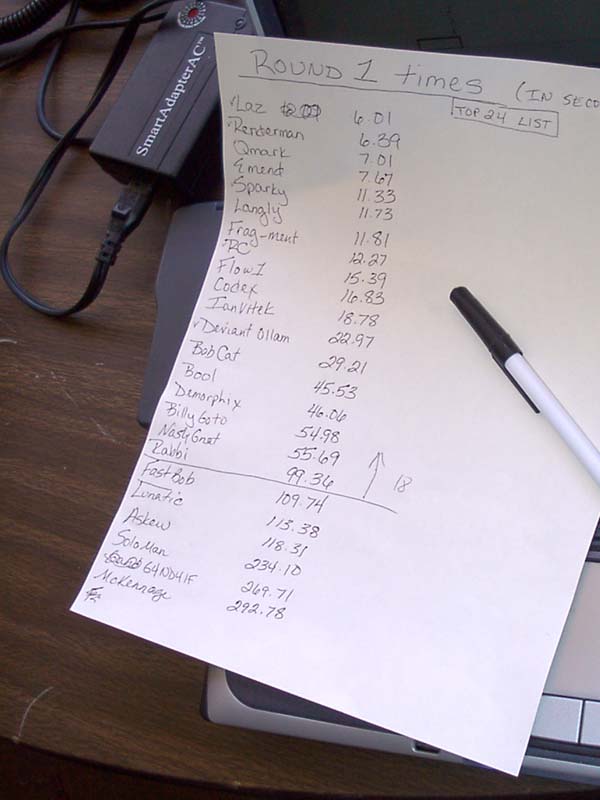 SmartAdapterAC™
ROUND 1 times (IN SECO
TOP 24 LIST
✓Laz 6.01
✓Renderman 6.39
Qmark 7.01
Emend 7.67
Sparky 11.33
Langly 11.73
Frag-ment 11.81
RC 12.27
Flow1 15.39
Codex 16.83
IanVitek 18.78
✓Deviant Ollam 22.97
BobCat 29.21
Bool 45.53
Demorphix 46.06
Billy Goto 54.98
NastyGnat 55.69
Rabbi 99.36
18
FastBob 109.74
Lunatic 113.38
Askew 118.31
SoloMan 234.10
G4ND41F 269.71
McKennage 292.78